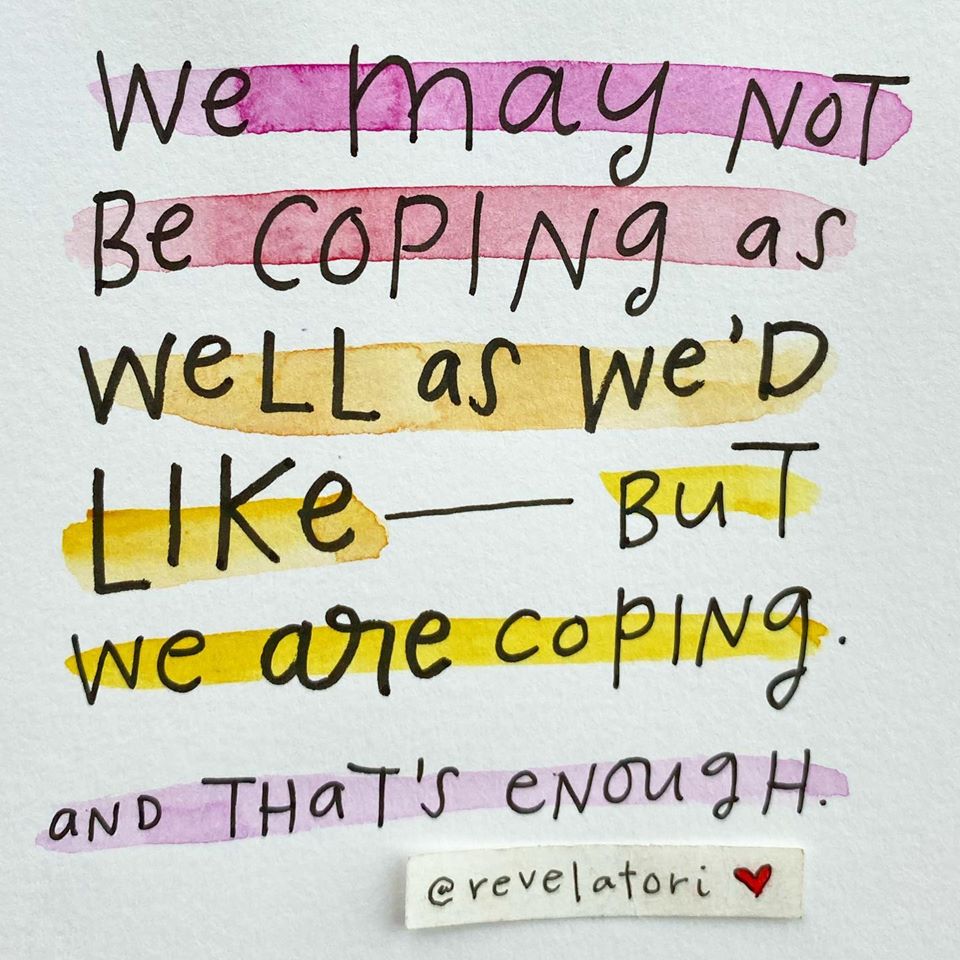 We may NOT
Be COPINg as
WeLL as We'D
LIKe — BuT
we are COPINg.
aND THaT's eNOugH.
@revelatori ❤